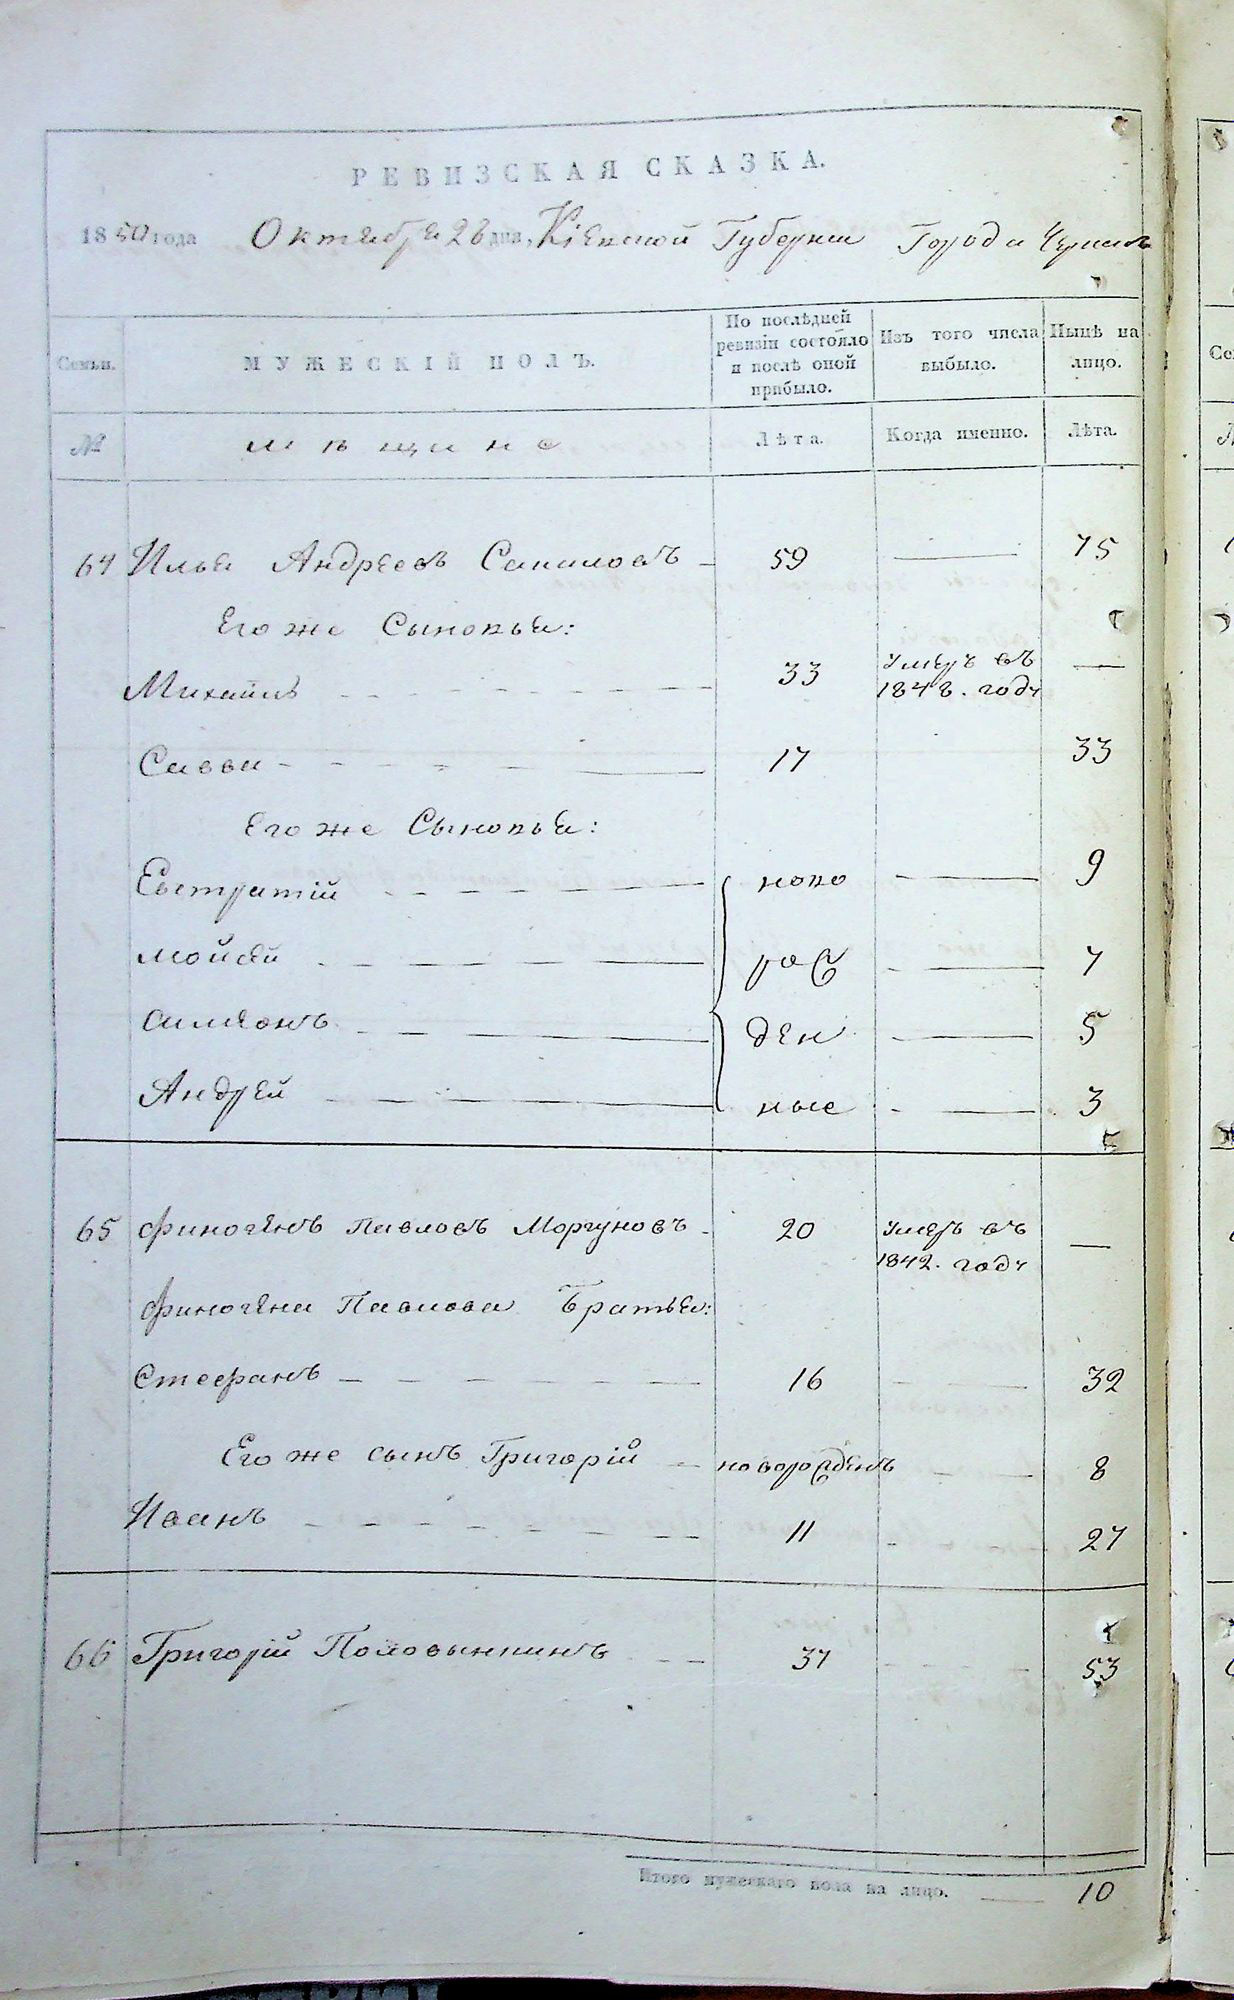 РЕВИЗСКАЯ СКАЗКА.
1850 года Октября 26 дня, Кіевской Губерніи Города
Семьи. МУЖЕСКІЙ ПОЛЪ. По послѣдней ревизіи состояло и послѣ оной прибыло. Изъ того числа выбыло. Нынѣ на лицо.
№ мѣщане Лѣта. Когда именно. Лѣта.
64 Илья Андреевъ 59 75
Его же Сыновья:
Михаилъ 33 Умеръ въ 1848. году
Савва 17 33
Его же Сыновья:
Евстратій ново 9
Мойсей рож 7
Симеонъ ден 5
Андрей ные 3
65 Финогенъ Павловъ Моргуновъ 20 Умеръ въ 1842. году
Финогена Павлова Братья:
Стефанъ 16 32
Его же сынъ Григорій новорожденъ 8
Иванъ 11 27
66 Григорій 37 53
Итого мужескаго пола на лицо. 10